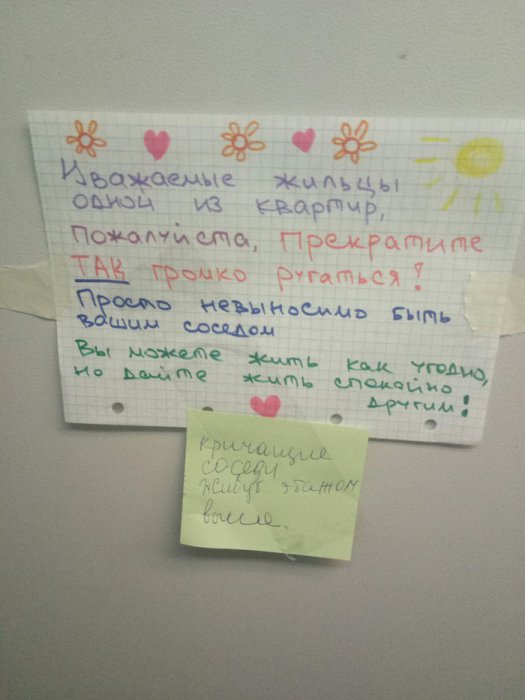 Уважаемые жильцы
одной из квартир,
пожалуйста, прекратите
ТАК громко ругаться!
Просто невыносимо быть
вашим соседом
Вы можете жить как угодно,
но дайте жить спокойно
другим!
кричащие
соседи
живут этажом
выше.